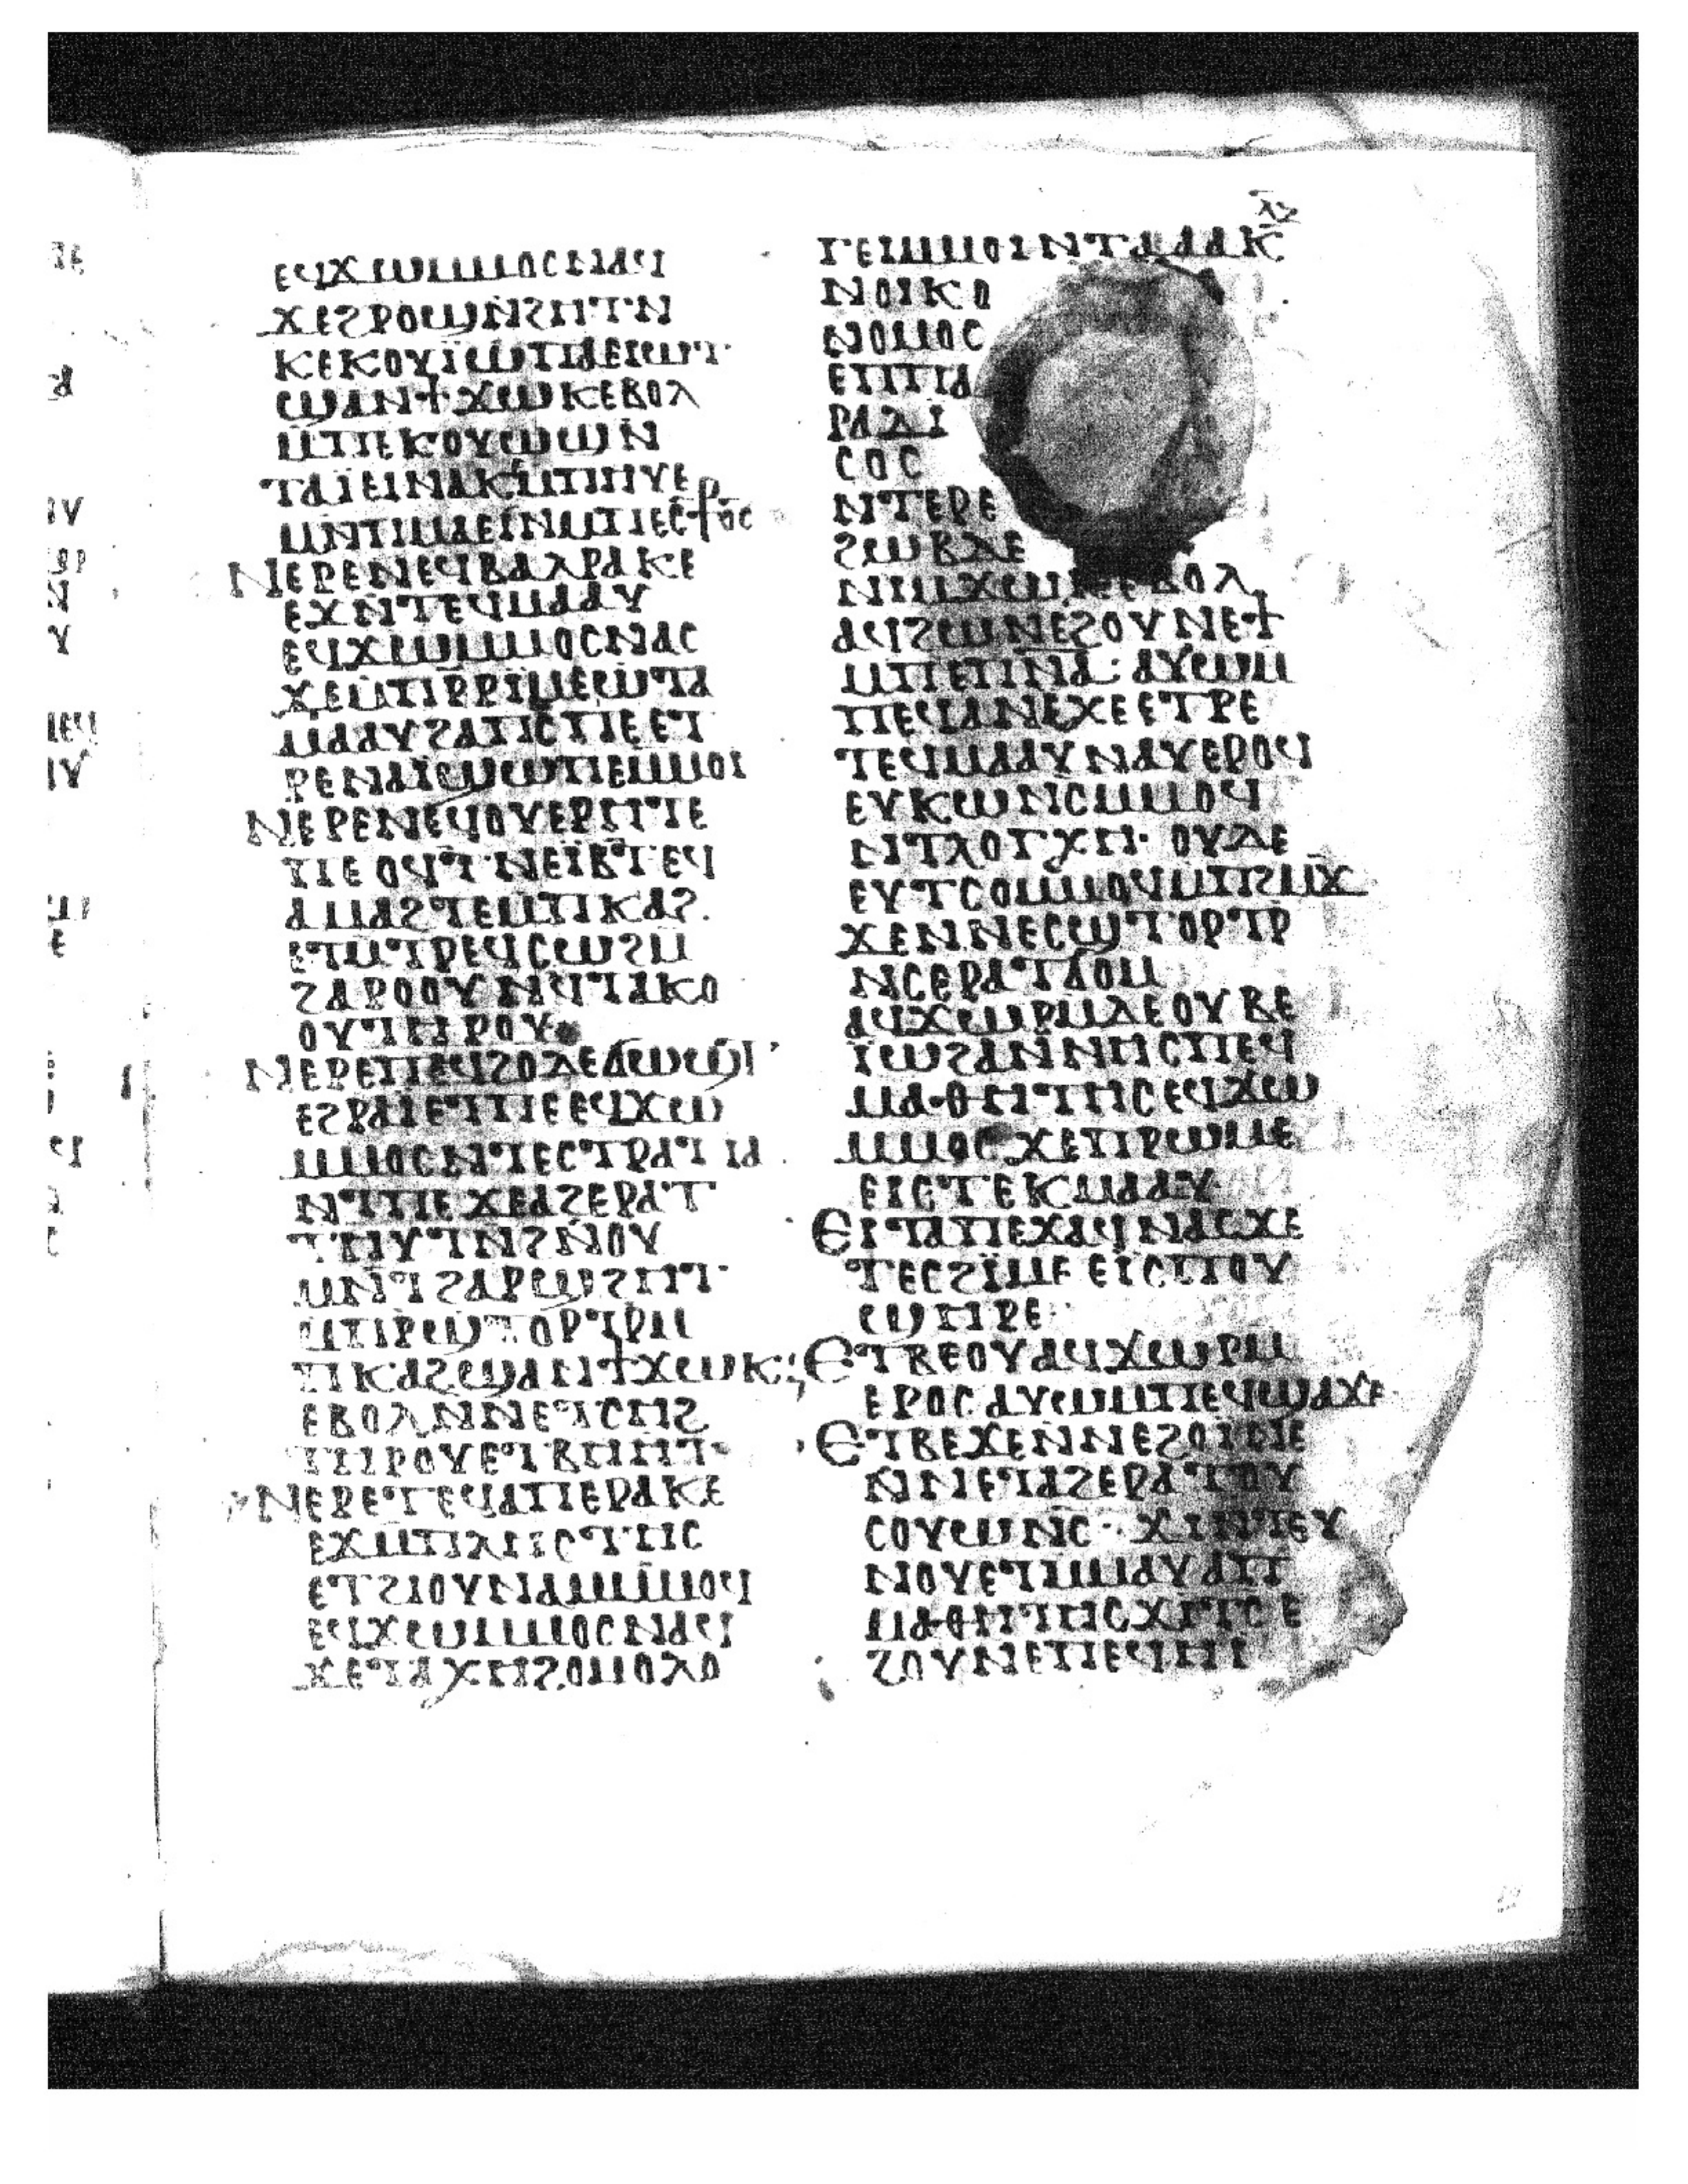 ⲗⲍ
ⲉϥϫⲱⲙⲙⲟⲥⲛⲁϥ
ϫⲉϩⲣⲟϣⲛϩⲏⲧⲛ
ⲕⲉⲕⲟⲩⲓ̈ⲱⲡⲁⲉⲓⲱⲧ
ϣⲁⲛϯϫⲱⲕⲉⲃⲟⲗ
ⲙⲡⲉⲕⲟⲩⲱϣ
ⲧⲁⲓ̈ⲉⲓⲛⲁⲕⲙⲡⲏⲩⲉ
ⲙⲛⲡⲙⲁⲉⲓⲛⲙⲡⲉⲥϯⲟⲥ
ⲛⲉⲣⲉⲛⲉϥⲃⲁⲗⲣⲁⲕⲉ
ⲉϫⲛⲧⲉϥⲙⲁⲁⲩ
ⲉϥϫⲱⲙⲙⲟⲥⲛⲁⲥ
ϫⲉⲙⲡⲣⲣⲓⲙⲉⲱⲧⲁ
ⲙⲁⲁⲩϩⲁⲡⲥⲡⲉⲉⲧ
ⲣⲉⲛⲁⲓ̈ϣⲱⲡⲉⲙⲙⲟⲓ
ⲛⲉⲣⲉⲛⲉϥⲟⲩⲉⲣⲏⲧⲉ
ⲡⲉ ⲟϥⲧⲛⲉⲓ̈ⲃⲧⲉϥ
ⲁⲙⲁϩⲧⲉⲙⲡⲕⲁϩ
ⲉⲧⲙⲧⲣⲉϥⲥⲱϩⲙ
ϩⲁⲣⲟⲟⲩⲛϥⲧⲁⲕⲟ
ⲟⲩⲧⲏⲣⲟⲩ
ⲛⲉⲣⲉⲡⲉϥϩⲟⲇⲉϭⲱϣⲧ
ⲉϩⲣⲁⲓⲉⲧⲡⲉⲉϥϫⲱ
ⲙⲙⲟⲥⲛⲧⲉⲥⲧⲣⲁⲧⲓⲁ
ⲛⲧⲡⲉ ϫⲉⲁϩⲉⲣⲁⲧ
ⲧⲏⲩⲧⲛϩⲛⲟⲩ
ⲙⲛⲧϩⲁⲣϣϩⲏⲧ
ⲙⲡⲣϣⲧⲟⲣⲧⲣⲙ
ⲡⲕⲁϩϣⲁⲛϯϫⲱⲕ
ⲉⲃⲟⲗⲛⲛⲉⲧⲥⲏϩ
ⲧⲏⲣⲟⲩⲉⲧⲃⲏⲏⲧ
ⲛⲉⲣⲉⲧⲉϥⲁⲡⲉⲣⲁⲕⲉ
ⲉϫⲙⲡⲗⲏⲥⲧⲏⲥ
ⲉⲧϩⲓⲟⲩⲛⲁⲙⲙⲙⲟϥ
ⲉϥϫⲱⲙⲙⲟⲥⲛⲁϥ
ϫⲉⲧⲁⲭⲏϩⲟⲙⲟⲗⲟ
ⲅⲉⲙⲙⲟⲓⲛⲧⲁⲁⲁⲕ
ⲛⲟⲓⲕⲟ
ⲛⲟⲙⲟⲥ
ⲉⲡⲡⲁ
ⲣⲁⲇⲓ
ⲥⲟⲥ
ⲛⲧⲉⲣⲉ
ϩⲱⲃⲇⲉ
ⲛⲓⲙϫⲱⲕⲉⲃⲟⲗ
ⲁϥϩⲱⲛⲉϩⲟⲩⲛⲉϯ
ⲙⲡⲉⲡⲛⲁ: ⲁⲩⲱⲙ
ⲡⲉϥⲁⲛⲉⲭⲉⲉⲧⲣⲉ
ⲧⲉϥⲙⲁⲁⲩⲛⲁⲩⲉⲣⲟϥ
ⲉⲩⲕⲱⲛⲥⲙⲙⲟϥ
ⲛⲧⲗⲟⲅⲭⲏ· ⲟⲩⲇⲉ
ⲉⲩⲧⲥⲟⲙⲙⲟϥⲙⲡϩⲙϫ
ϫⲉⲛⲛⲉⲥϣⲧⲟⲣⲧⲣ
ⲛⲥⲉⲣⲁⲧϭⲟⲙ
ⲁϥϫⲱⲣⲙⲇⲉⲟⲩⲃⲉ
ⲓ̈ⲱϩⲁⲛⲛⲏⲥⲡⲉϥ
ⲙⲁⲑⲏⲧⲏⲥⲉϥϫⲱ
ⲙⲙⲟⲥ ϫⲉⲡⲣⲱⲙⲉ
ⲉⲓⲥⲧⲉⲕⲙⲁⲁⲩ
ⲉⲓⲧⲁⲡⲉϫⲁϥⲛⲁⲥϫⲉ
ⲧⲉⲥϩⲓ̈ⲙⲉ ⲉⲓ̈ⲥⲡⲟⲩ
ϣⲏⲣⲉ
ⲉⲧⲃⲉⲟⲩⲁϥϫⲱⲣⲙ
ⲉⲣⲟⲥ ⲁⲩⲱⲙⲡⲉϥϣⲁϫⲉ
ⲉⲧⲃⲉϫⲉⲛⲛⲉϩⲟⲓⲛⲉ
ⲛⲛⲉⲧⲁϩⲉⲣⲁⲧⲟⲩ
ⲥⲟⲩⲱⲛⲥ· ϫⲓⲛⲧⲉⲩ
ⲛⲟⲩⲉⲧⲙⲙⲁⲩ ⲁⲡ
ⲙⲁⲑⲏⲧⲏⲥϫⲓⲧⲥ ⲉ
ϩⲟⲩⲛⲉⲡⲉϥⲏⲓ